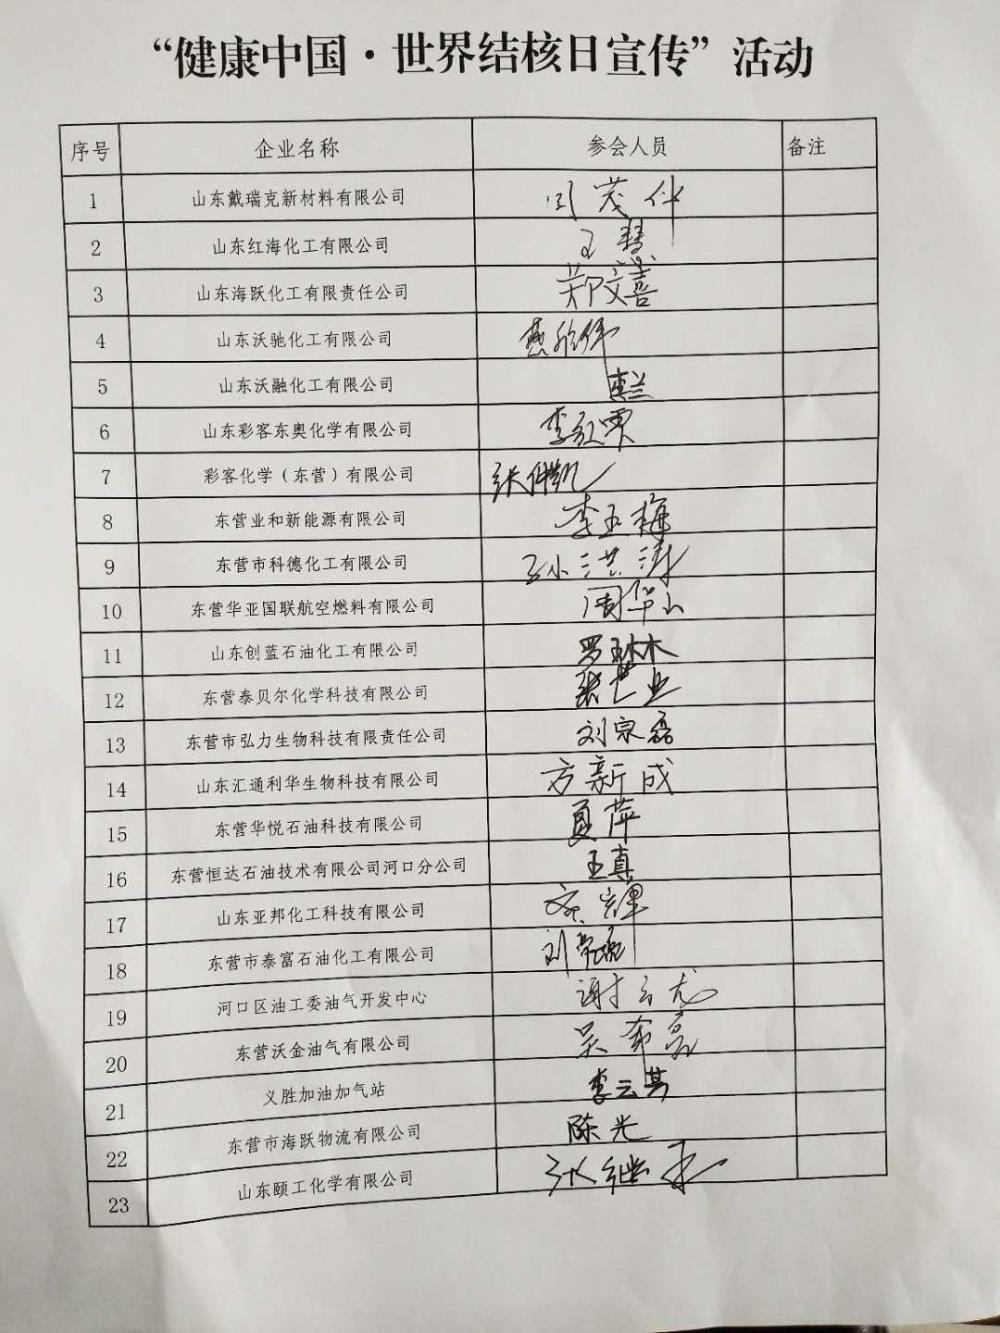 “健康中国·世界结核日宣传”活动
序号 企业名称 参会人员 备注
1 山东戴瑞克新材料有限公司
2 山东红海化工有限公司 王慧
3 山东海跃化工有限责任公司 郑文善
4 山东沃驰化工有限公司
5 山东沃融化工有限公司
6 山东彩客东奥化学有限公司
7 彩客化学（东营）有限公司
8 东营业和新能源有限公司 李玉梅
9 东营市科德化工有限公司 孙洪涛
10 东营华亚国联航空燃料有限公司 周华山
11 山东创蓝石油化工有限公司 罗琳木
12 东营泰贝尔化学科技有限公司
13 东营市弘力生物科技有限责任公司 刘宗磊
14 山东汇通利华生物科技有限公司 方新成
15 东营华悦石油科技有限公司 夏萍
16 东营恒达石油技术有限公司河口分公司 王真
17 山东亚邦化工科技有限公司
18 东营市泰富石油化工有限公司
19 河口区油工委油气开发中心 谢云龙
20 东营沃金油气有限公司
21 义胜加油加气站 李云其
22 东营市海跃物流有限公司 陈光
23 山东颐工化学有限公司